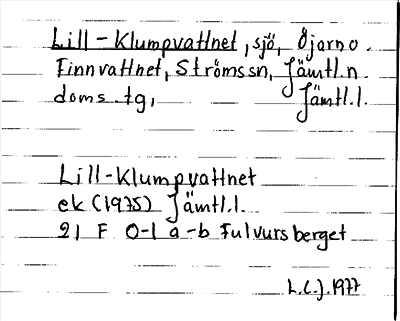 Lill-Klumpvattnet, sjö, Öjarn o.
Finnvattnet, Ströms sn, Jämtl. n.
doms. tg, Jämtl. l.
Lill-Klumpvattnet
ek (1975) Jämtl. l.
21 F 0-1 a-b Fulvurs berget
L.C.J. 1977